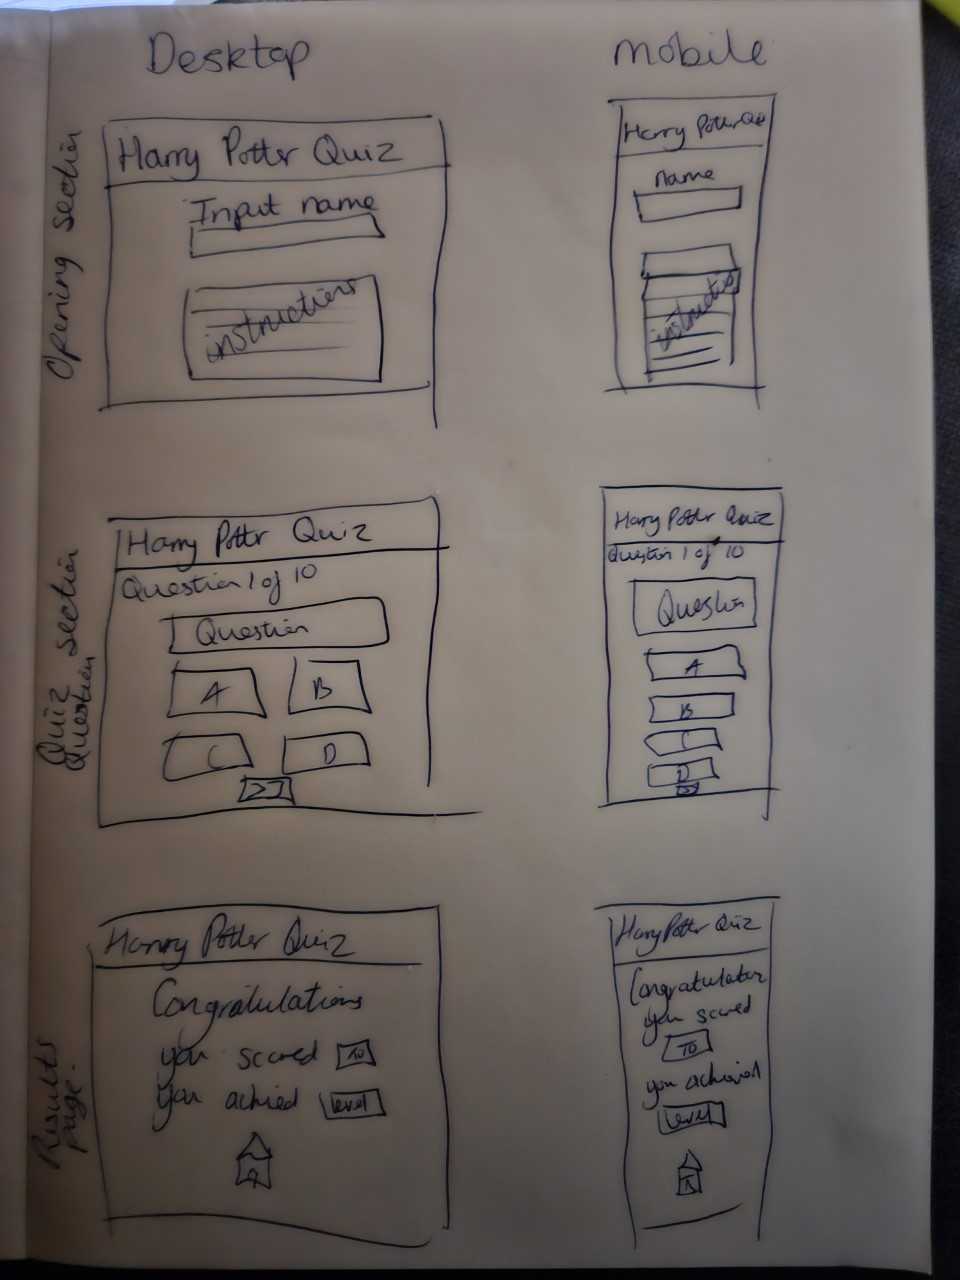 Desktop
mobile
Opening section
Harry Potter Quiz
Input name
instructions
Harry Potter Quiz
name
Quiz section
Question
Harry Potter Quiz
Question 1 of 10
Question
A
B
C
D
>>
Harry Potter Quiz
Question 1 of 10
Question
A
B
C
D
Results
page.
Harry Potter Quiz
Congratulations
you scored
You achied level
Harry Potter Quiz
you scored
you achieved
level